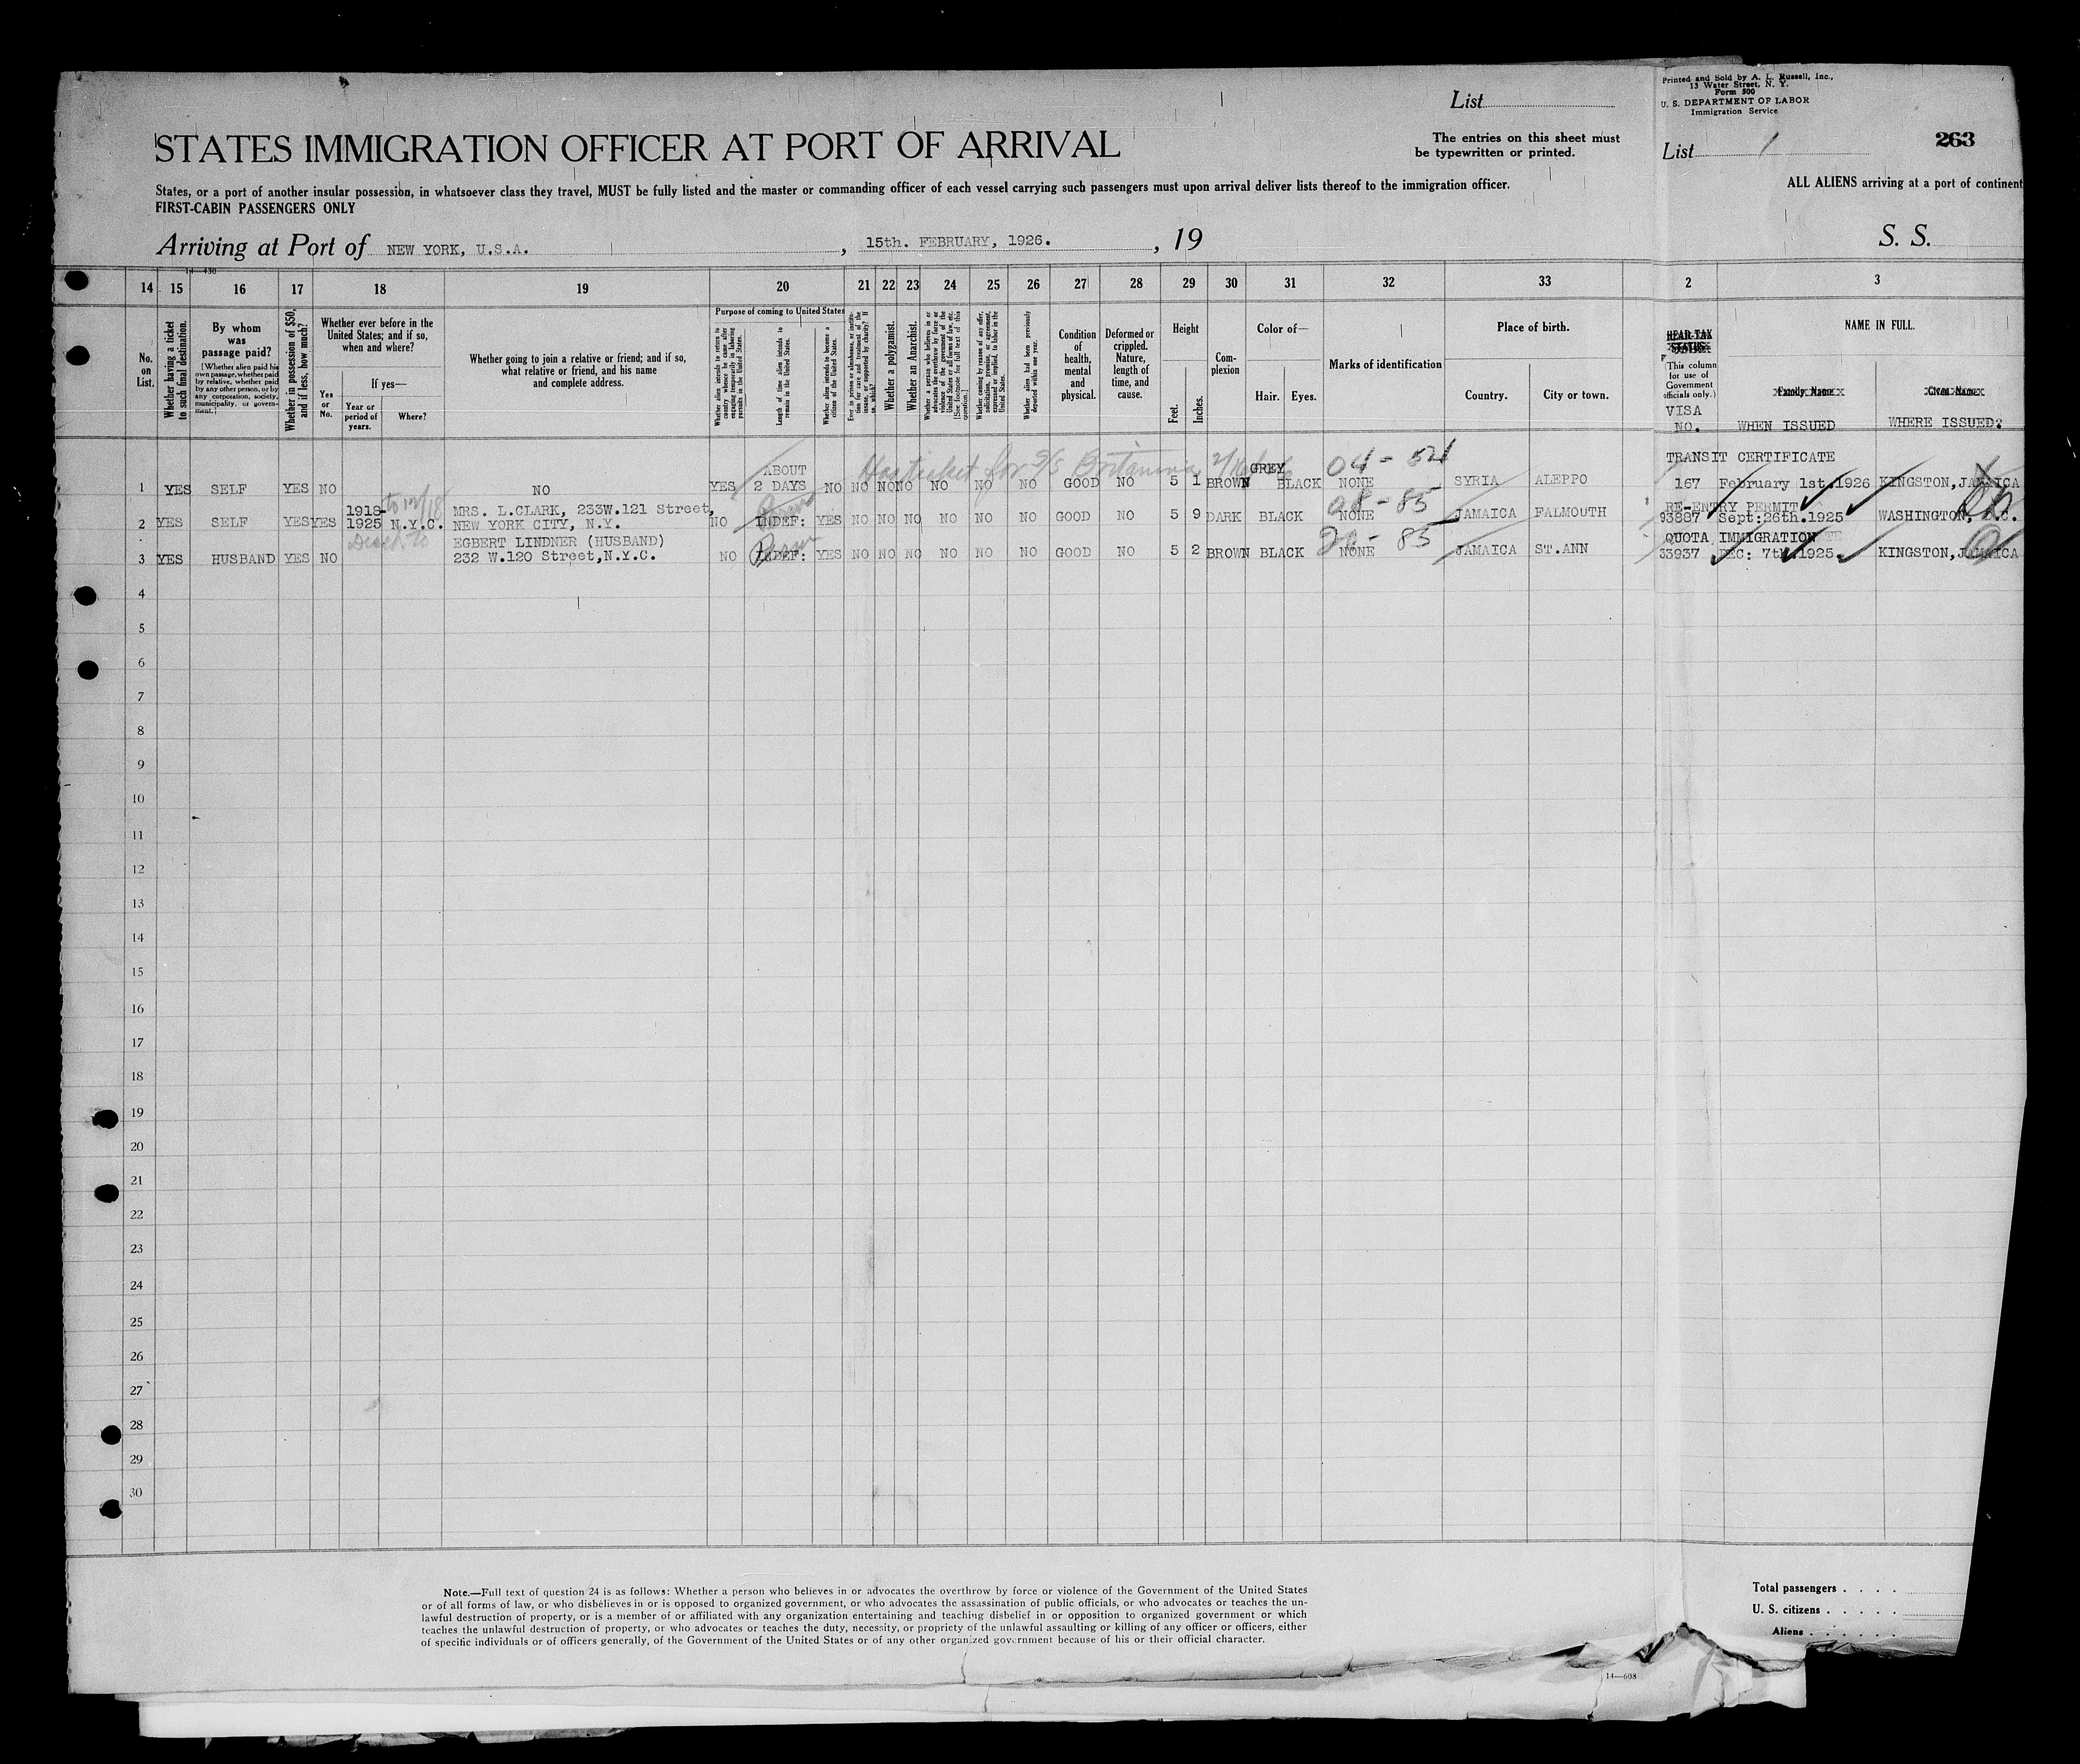 Printed and Sold by A. L. Russell, Inc.,
13 Water Street, N. Y.
Form 500
U. S. DEPARTMENT OF LABOR
Immigration Service
List
List 1
263
STATES IMMIGRATION OFFICER AT PORT OF ARRIVAL
The entries on this sheet must
be typewritten or printed.
States, or a port of another insular possession, in whatsoever class they travel, MUST be fully listed and the master or commanding officer of each vessel carrying such passengers must upon arrival deliver lists thereof to the immigration officer.
ALL ALIENS arriving at a port of continent
FIRST-CABIN PASSENGERS ONLY
Arriving at Port of NEW YORK, U.S.A. , 15th. FEBRUARY, 1926. , 19
S. S.
14—430
14 15 16 17 18 19 20 21 22 23 24 25 26 27 28 29 30 31 32 33 2 3
No. on List.
Whether having a ticket to such final destination.
By whom was passage paid?
[Whether alien paid his own passage, whether paid by relative, whether paid by any other person, or by any corporation, society, municipality, or government.]
Whether in possession of $50, and if less, how much?
Whether ever before in the United States; and if so, when and where?
Yes or No.
If yes—
Year or period of years.
Where?
Whether going to join a relative or friend; and if so, what relative or friend, and his name and complete address.
Purpose of coming to United States
Whether alien intends to return to country whence he came after engaging temporarily in laboring pursuits in the United States.
Length of time alien intends to remain in the United States.
Whether alien intends to become a citizen of the United States.
Whether a polygamist.
Whether an Anarchist.
Condition of health, mental and physical.
Deformed or crippled. Nature, length of time, and cause.
Height
Feet. Inches.
Complexion
Color of—
Hair. Eyes.
Marks of identification
Place of birth.
Country. City or town.
HEAD-TAX STATUS
(This column for use of Government officials only.)
VISA NO.
NAME IN FULL.
Family Name Given Name
WHEN ISSUED WHERE ISSUED?
Has ticket for S/S Britannia
04 - 54
TRANSIT CERTIFICATE
1 YES SELF YES NO NO YES ABOUT 2 DAYS NO NO NO NO NO NO NO GOOD NO 5 1 BROWN GREY BLACK NONE SYRIA ALEPPO 167 February 1st.1926 KINGSTON, JAMAICA
08 - 85
RE-ENTRY PERMIT
2 YES SELF YES YES 1918-1925 N.Y.C. MRS. L.CLARK, 233W.121 Street, NEW YORK CITY, N.Y. NO INDEF: YES NO NO NO NO NO NO GOOD NO 5 9 DARK BLACK NONE JAMAICA FALMOUTH 93887 Sept:26th.1925 WASHINGTON, D.C.
- 85
QUOTA IMMIGRATION
3 YES HUSBAND YES NO EGBERT LINDNER (HUSBAND) 232 W.120 Street,N.Y.C. NO INDEF: YES NO NO NO NO NO NO GOOD NO 5 2 BROWN BLACK NONE JAMAICA ST.ANN 33937 DEC: 7th.1925 KINGSTON, JAMAICA
4
5
6
7
8
9
10
11
12
13
14
15
16
17
18
19
20
21
22
23
24
25
26
27
28
29
30
Note.—Full text of question 24 is as follows: Whether a person who believes in or advocates the overthrow by force or violence of the Government of the United States
or of all forms of law, or who disbelieves in or is opposed to organized government, or who advocates the assassination of public officials, or who advocates or teaches the un-
lawful destruction of property, or is a member of or affiliated with any organization entertaining and teaching disbelief in or opposition to organized government or which
teaches the unlawful destruction of property, or who advocates or teaches the duty, necessity, or propriety of the unlawful assaulting or killing of any officer or officers, either
of specific individuals or of officers generally, of the Government of the United States or of any other organized government because of his or their official character.
Total passengers
U. S. citizens
Aliens
14—608